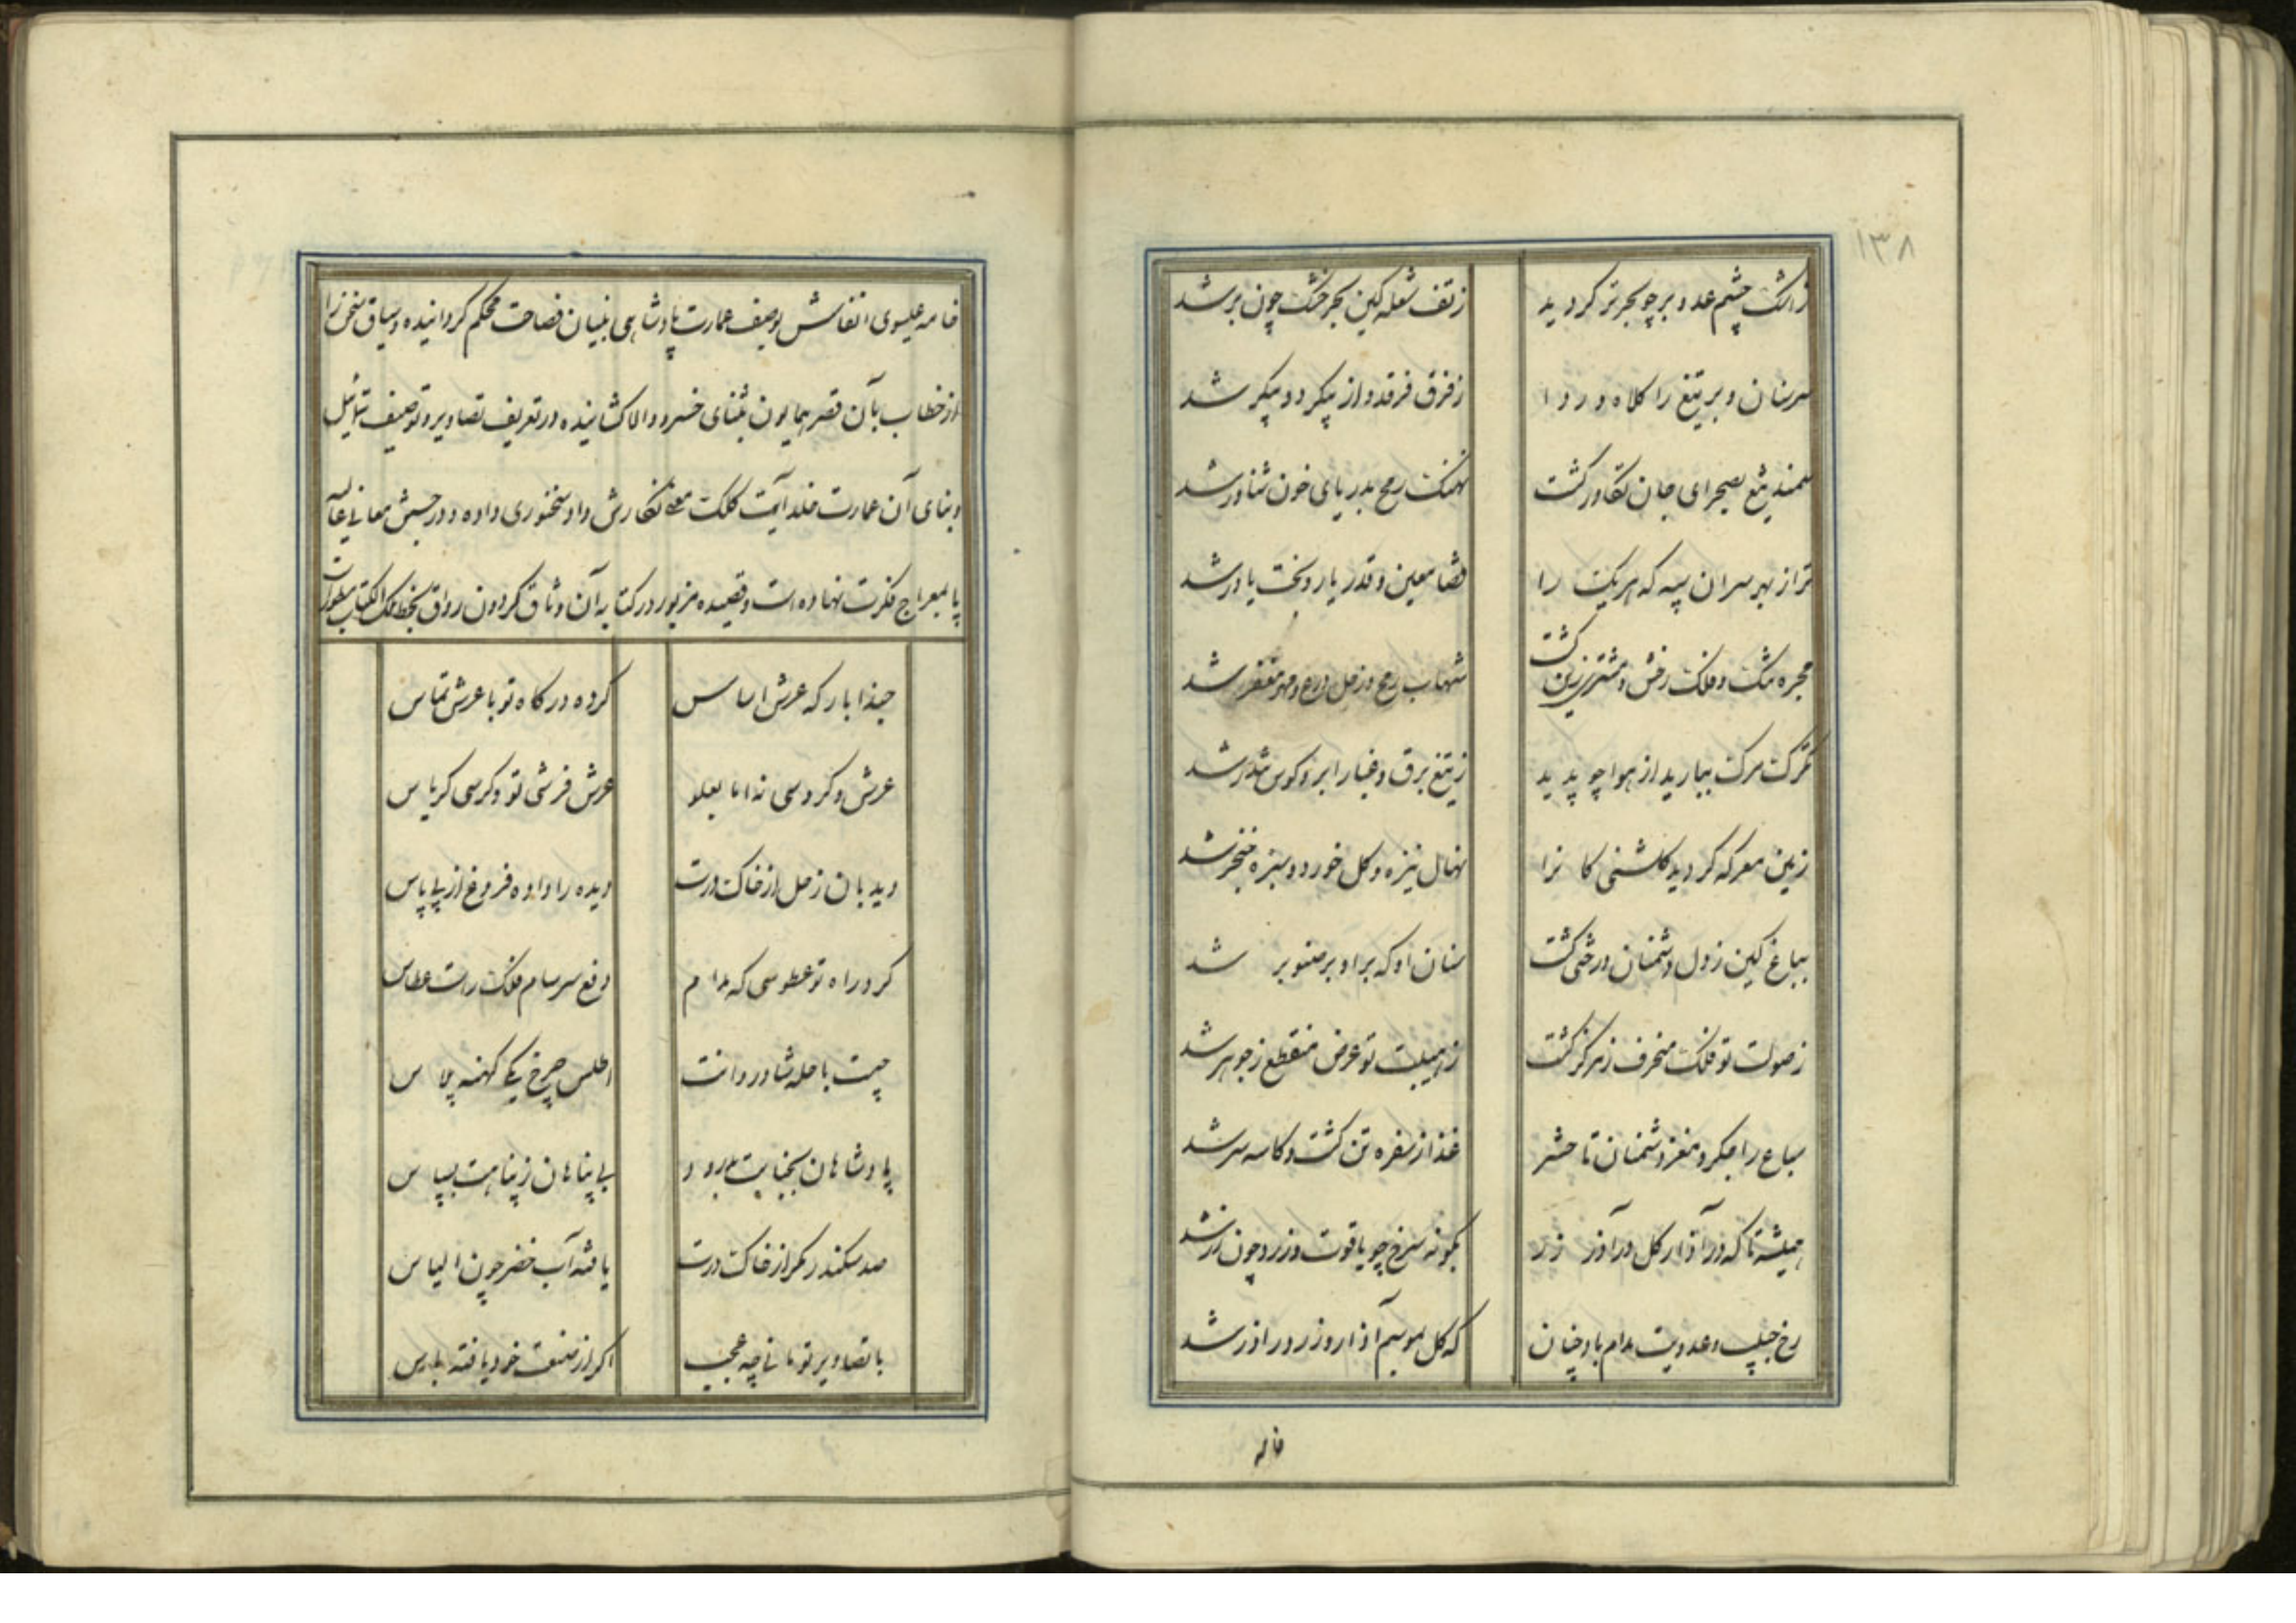 ۱۳۸
ز اشک چشم عدو بر چو بحر تر گردید ز تف شعله کین بحر خشک چون بر شد
سر سنان و بر تیغ را کلاه و ردا ز فرق فرقد و از پیکر دو پیکر شد
سمند تیغ بصحرای جان تکاور گشت نهنگ رمح بدریای خون شناور شد
ترا ز بهر سران سپه که هر یک را قضا معین و قدر یار و بخت یاور شد
مجره تنگ و فلک رخش و مشتری زین گشت شهاب رمح و زحل درع و مهر مغفر شد
تگرگ مرگ ببارید از هوا چو پدید ز تیغ برق و غبار ابر و کوس تندر شد
زمین معرکه گردید گلشنی کانرا نهال نیزه و گل خود و سبزه خنجر شد
بباغ کین ز دل دشمنان درختی گشت سنان او که بر او بر صنوبر شد
ز صولت تو فلک منحرف ز مرکز گشت ز هیبت تو عرض منقطع ز جوهر شد
سباع را جگر و مغز دشمنان تا حشر غذا ز سفره تن گشت و کاسه سر شد
همیشه تا که در آذار گل در آذر زر بگونه سرخ چو یاقوت و زرد چون زر شد
رخ حبیب و عدویت مدام باد چنان که گل بموسم آذار و زر در آذر شد
خامه
خامه عیسوی انفاسش بوصف عمارت پادشاهی بنیان فصاحت محکم گردانیده و سیاق سخن را
از خطاب بآن قصر همایون بثنای خسرو والا کشانیده در تعریف تصاویر و توصیف تماثیل
و بنای آن عمارت خلد آیت کلک معنی نگارش داد سخنوری داده و در جستن معانی عالیه
پا بمعراج فکرت نهاده است و قصیده مزبور در کتابه آن وثاق گردون رواق بخط ملک الکتاب مسطور است
حبذا بارگه عرش اساس کرده درگاه تو با عرش تماس
عرش و کرسی نه اما بعلو عرش فرشی تو و کرسی کریاس
دیدبان زحل از خاک درت دیده را داده فروغ از پی پاس
گرد راه تو عطوسی که مدام دفع سرسام فلک راست عطاس
چیست با حله شادروانت اطلس چرخ یکی کهنه پلاس
پادشاهان بجنابت بدرود بی پناهان ز پناهت بسپاس
صد سکندر مگر از خاک درت یافته آب خضر چون الیاس
با تصاویر تو مانی چه عجب اگر از صنعت خود یافته یاس